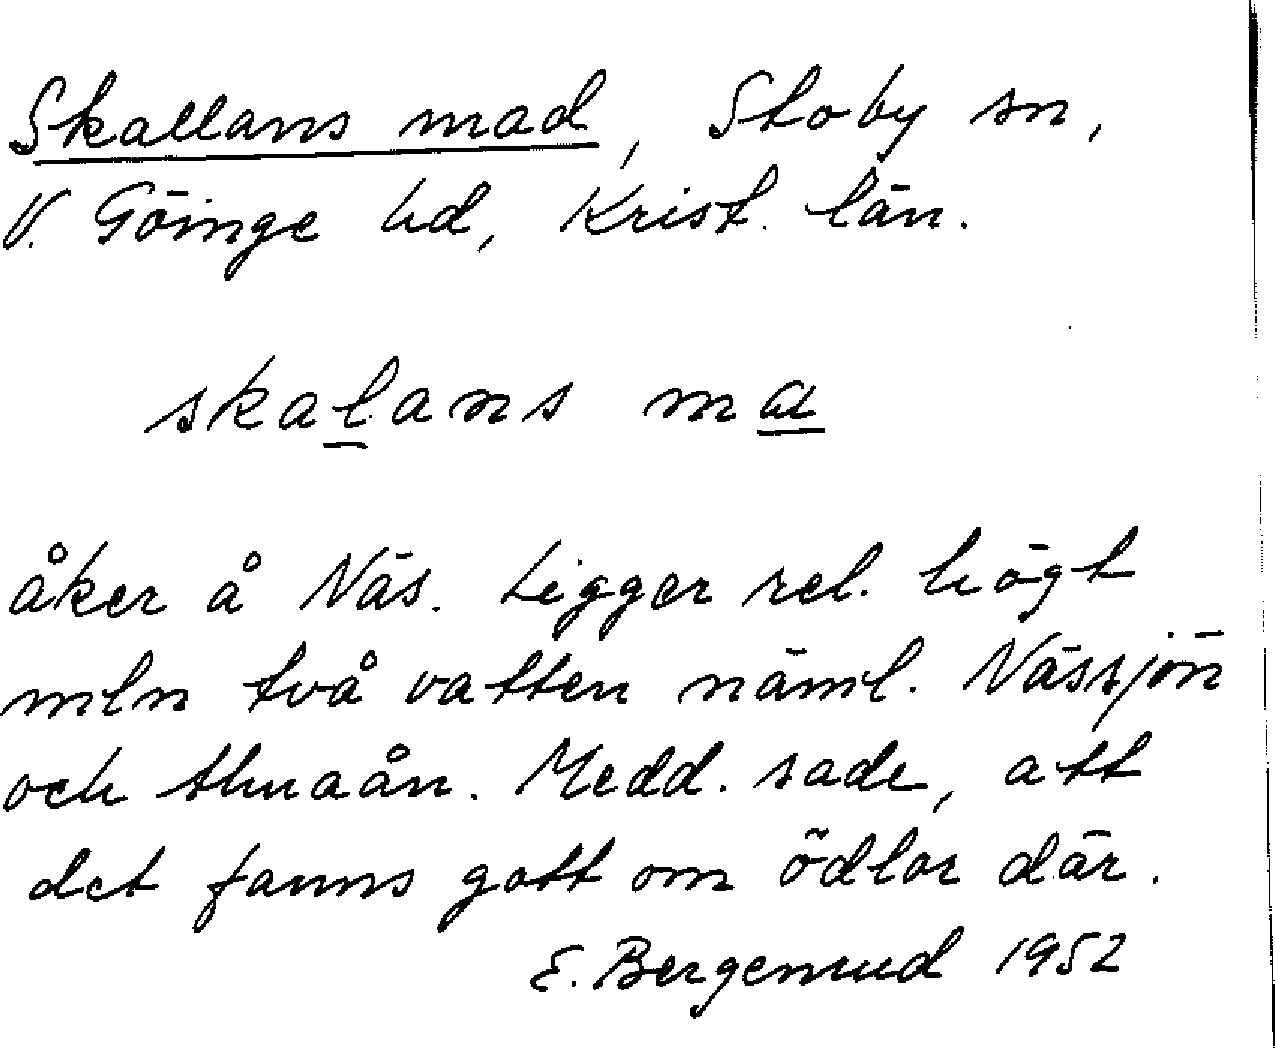 Skallans mad, Stoby sn,
V. Göinge hd, Krist. län.
skalans ma
åker å Näs. Ligger rel. högt
mln två vatten näml. Nässjön
och Almaån. Medd. sade, att
det fanns gott om ödlor där.
E. Bergenrud 1952